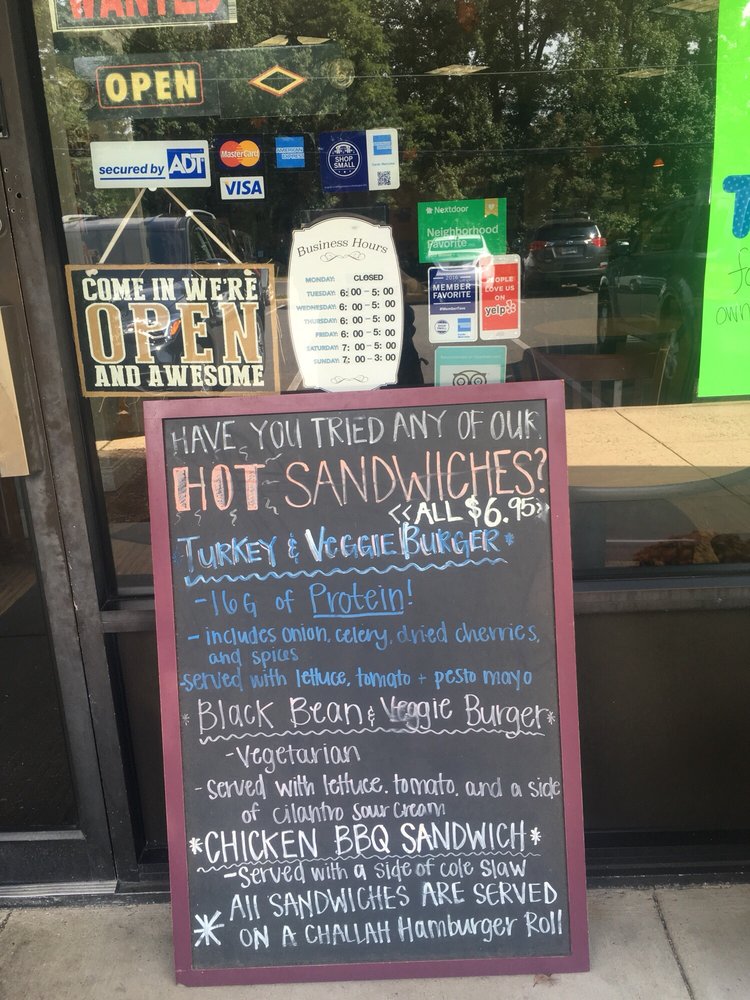 WANTED
OPEN
secured by ADT
MasterCard
AMERICAN EXPRESS
VISA
SHOP SMALL
Nextdoor
Neighborhood
Favorite
2016
MEMBER
FAVORITE
PEOPLE
LOVE US
ON
yelp
COME IN WE'RE
OPEN
AND AWESOME
Business Hours
MONDAY: CLOSED
TUESDAY: 6:00 - 5:00
WEDNESDAY: 6:00 - 5:00
THURSDAY: 6:00 - 5:00
FRIDAY: 6:00 - 5:00
SATURDAY: 7:00 - 5:00
SUNDAY: 7:00 - 3:00
HAVE YOU TRIED ANY OF OUR
HOT SANDWICHES?
<<ALL $6.95>>
TURKEY & VEGGIE BURGER*
-16G of Protein!
- includes onion, celery, dried cherries,
and spices
-served with lettuce, tomato + pesto mayo
*Black Bean & Veggie Burger*
-Vegetarian
- Served with lettuce, tomato, and a side
of cilantro sour cream
*CHICKEN BBQ SANDWICH*
-Served with a side of cole slaw
All SANDWICHES ARE SERVED
* ON A CHALLAH Hamburger Roll